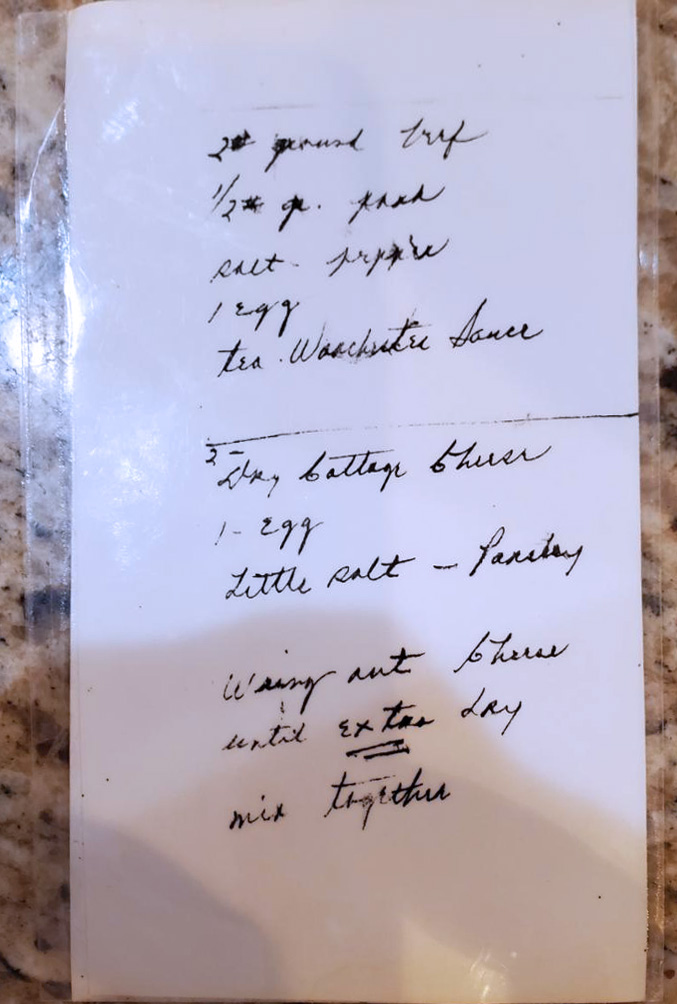 2# ground beef
1/2# gr. pork
salt - pepper
1 egg
tea. Worchester Sauce
2-
Dry Cottage Cheese
1- Egg
Little salt - Parsley
Wring out Cheese
until extra dry
mix together